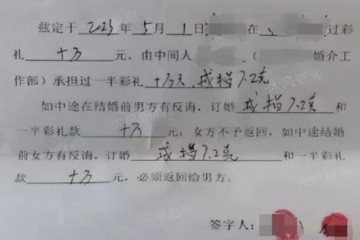 兹定于 2023 年 5 月 1 日 在 过彩
礼 十万 元，由中间人 （ 婚介工
作部）承担过一半彩礼 十万元，戒指7.2克
如中途在结婚前男方有反悔，订婚 戒指7.2克 和
一半彩礼款 十万 元；女方不予返回，如中途结婚
前女方有反悔，订婚 戒指7.2克 和一半彩礼
款 十万 元，必须返回给男方。
签字人：